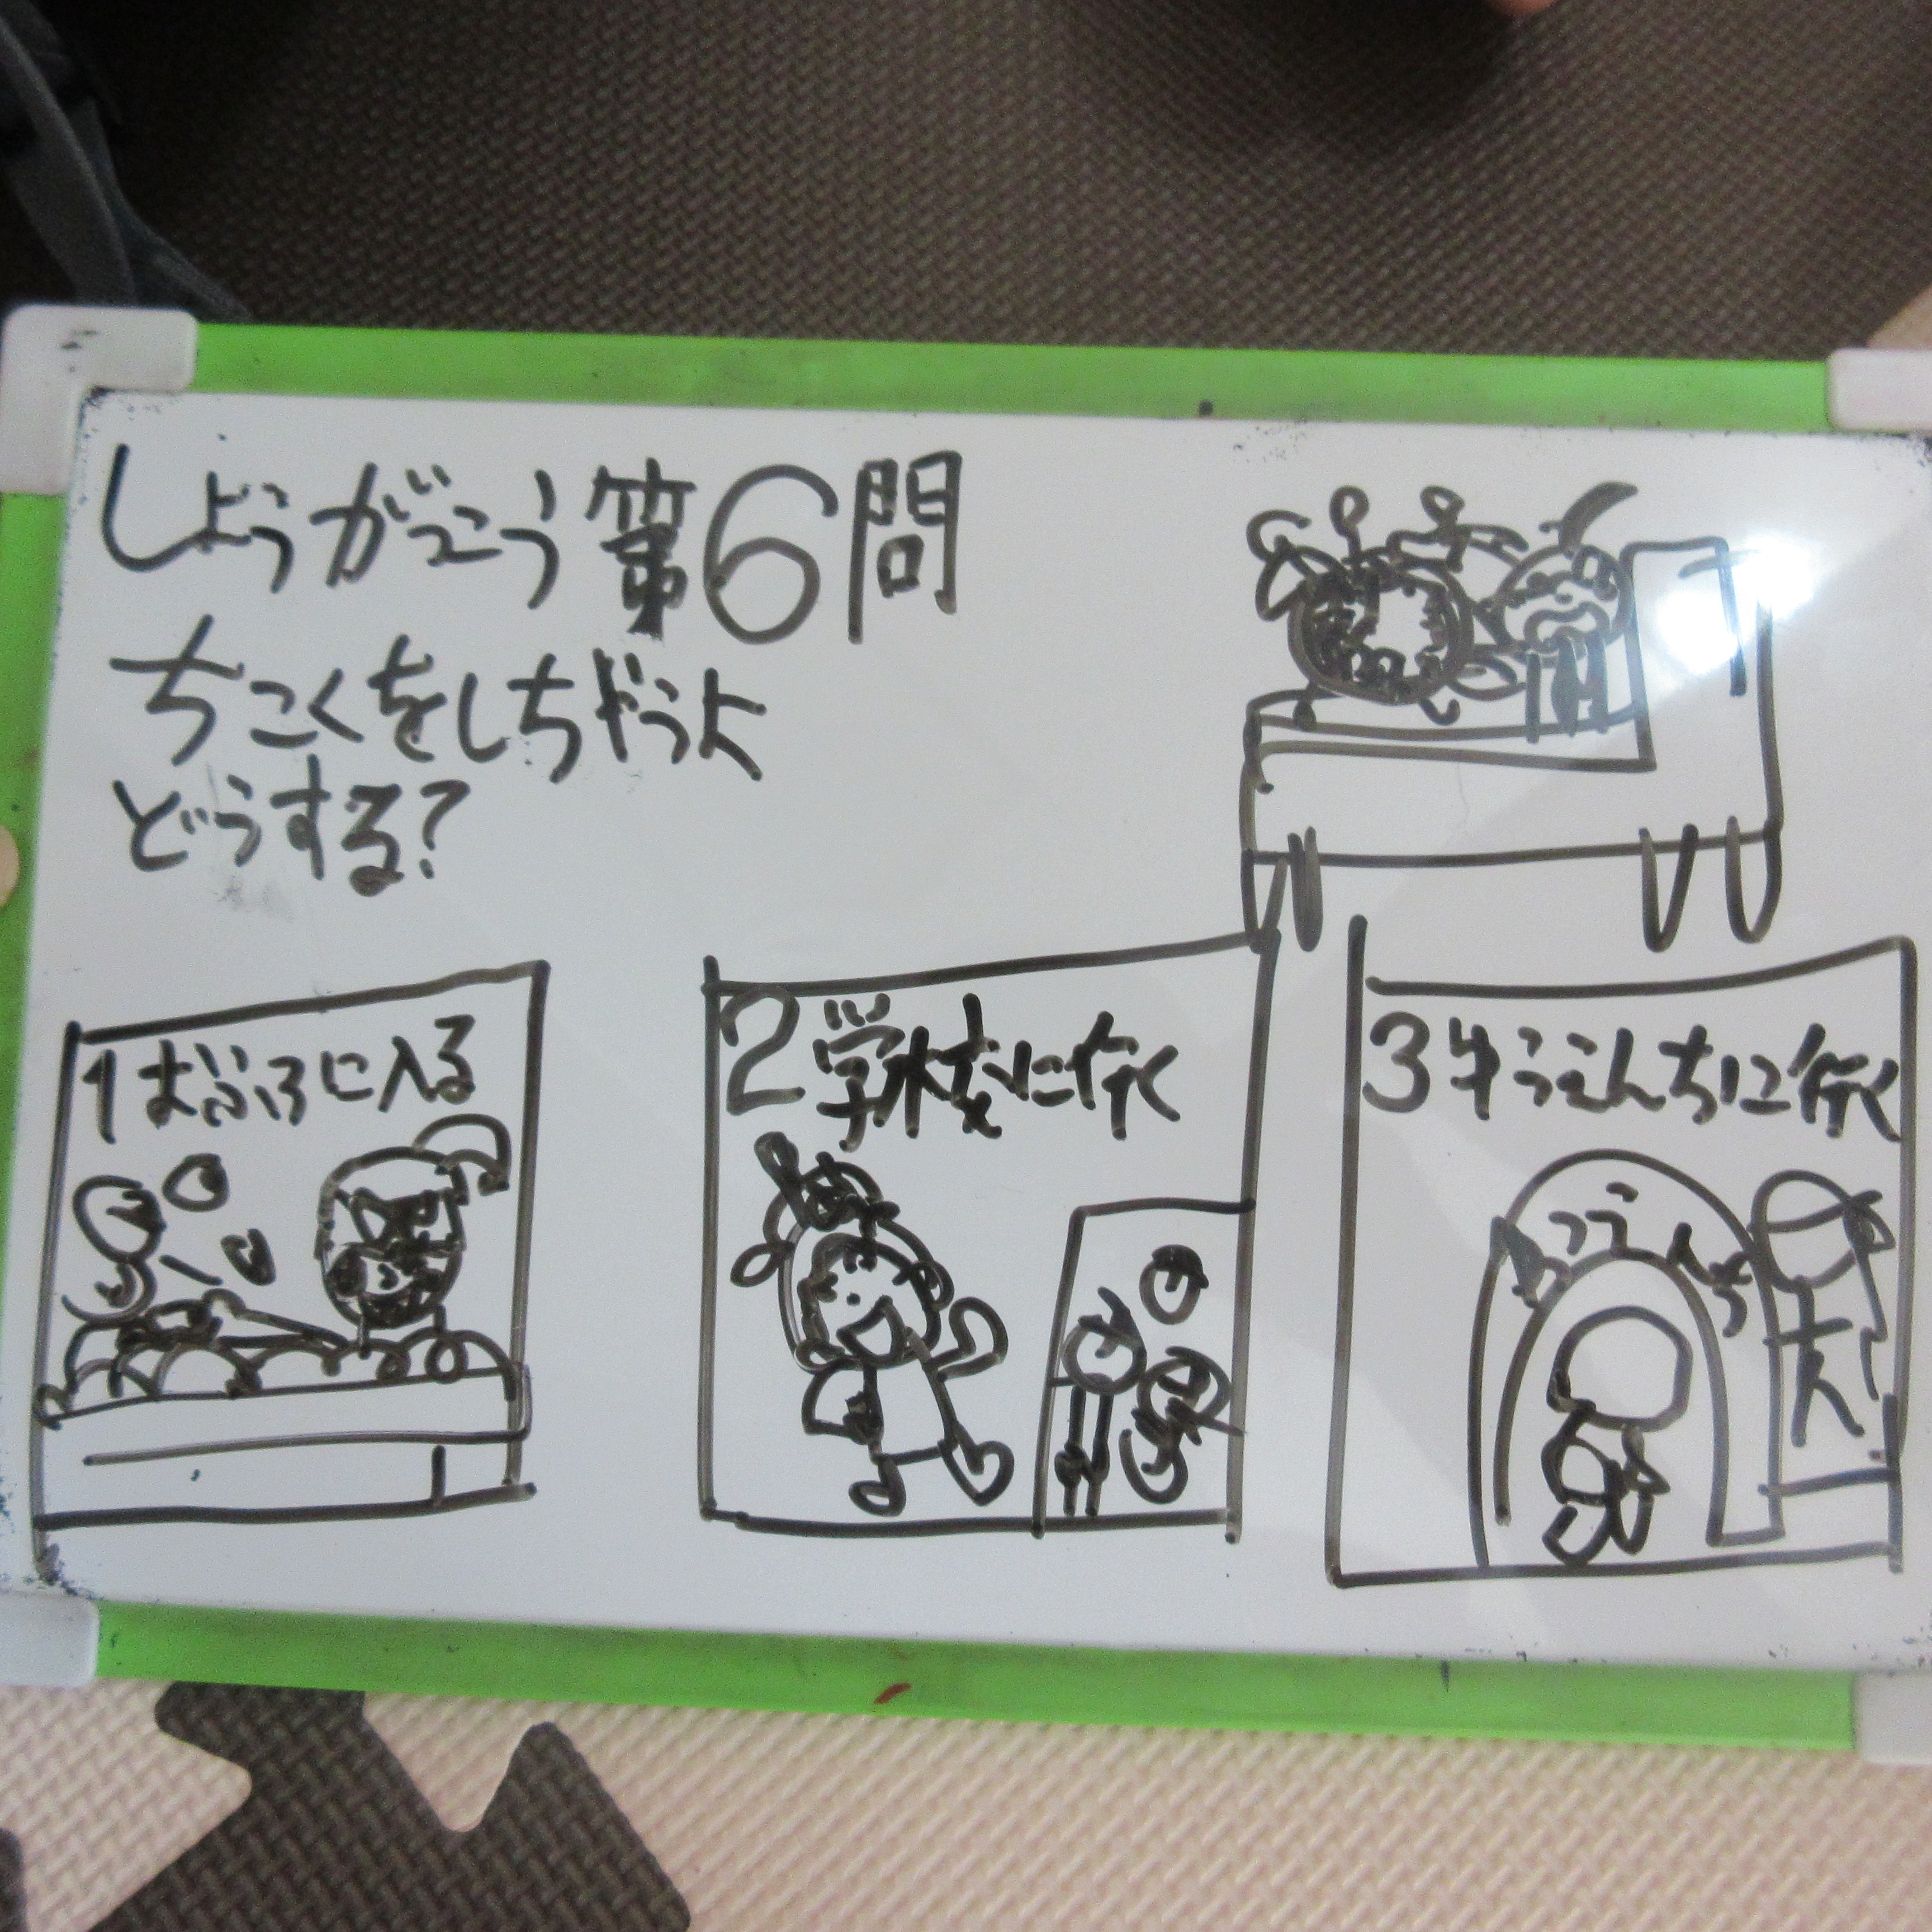 しょうがっこう第6問
ちこくをしちゃうよ
どうする?
1 おふろに入る
2 学校に行く
3 ようえんちに行く